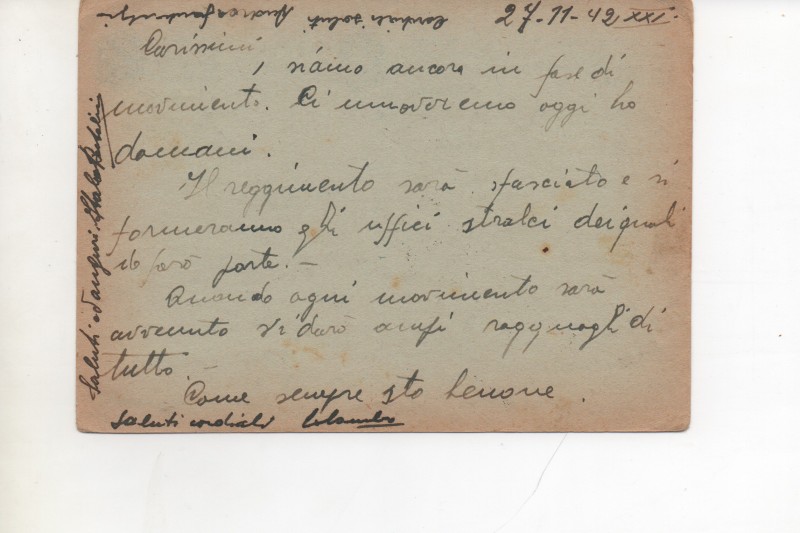 27-11-42 XXI.
Cordiali saluti
Carissimi,
siamo ancora in fase di
movimento. Ci muoveremo oggi ho
domani.
Il reggimento sarà sfasciato e si
formeranno gli uffici stralci dei quali
io farò parte. -
Quando ogni movimento sarà
avvenuto vi darò ampi ragguagli di
tutto. -
Come sempre sto benone.
Saluti cordiali Colombo
Saluti ed auguri